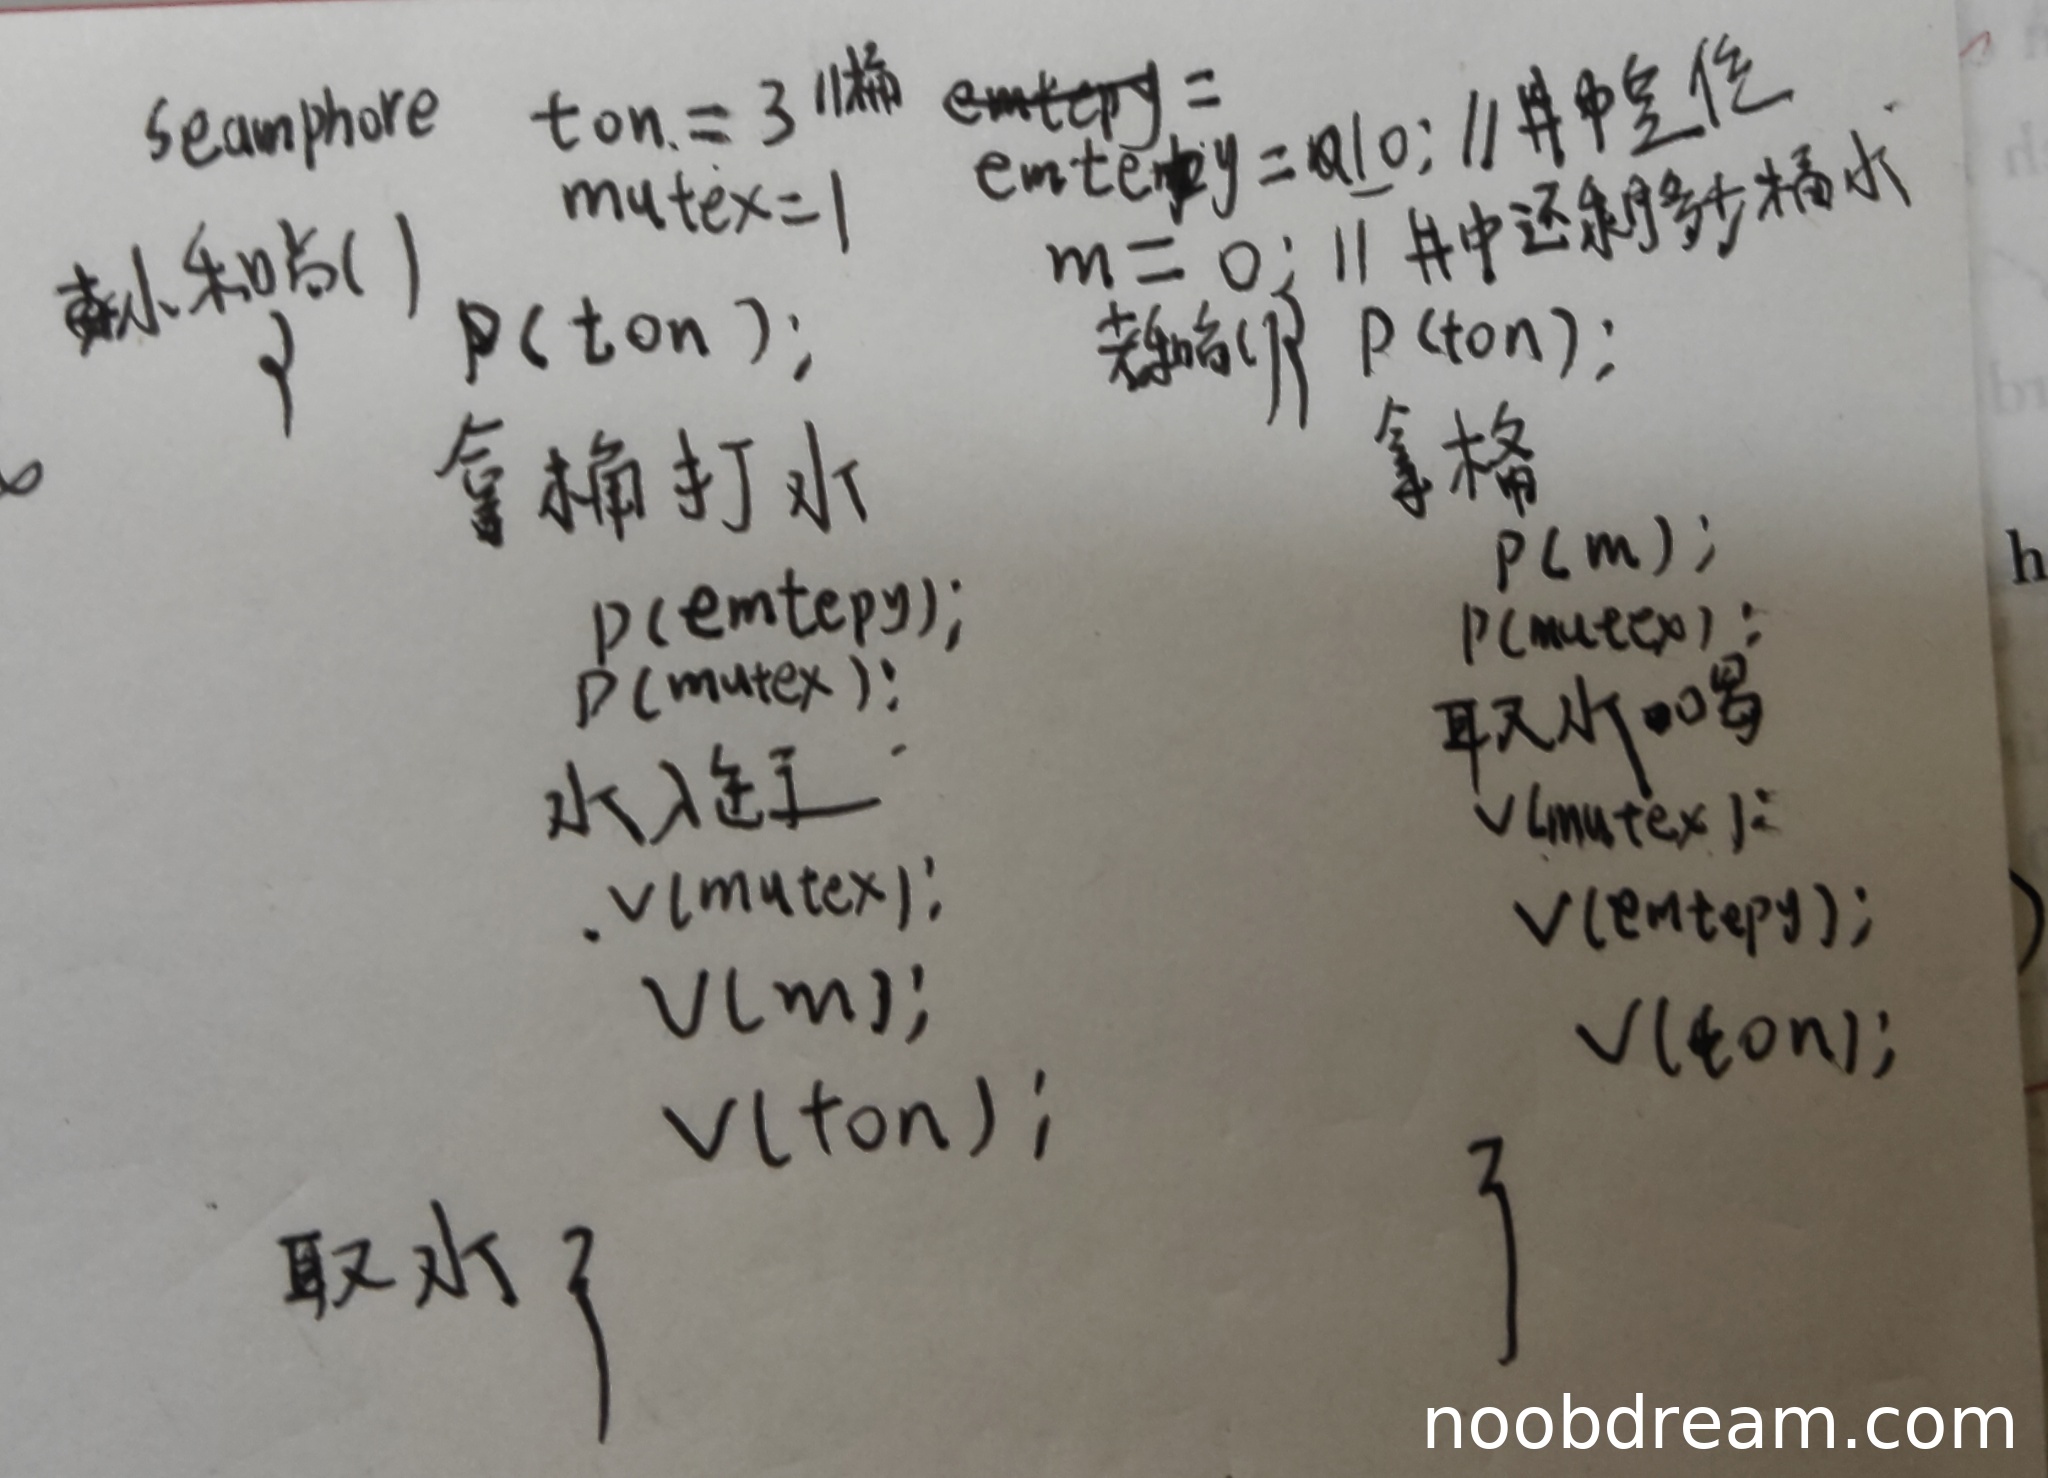 seamphore ton = 3 //桶 emtepy =
mutex=1 emtepy = 10; // 井中空位
m = 0; // 井中还剩多少桶水
小和尚()
{
P(ton);
拿桶打水
P(emtepy);
P(mutex);
水入缸
V(mutex);
V(m);
V(ton);
取水 }
老和尚(){ P(ton);
拿桶
P(m);
P(mutex);
取水喝
V(mutex);
V(emtepy);
V(ton);
}
h
noobdream.com